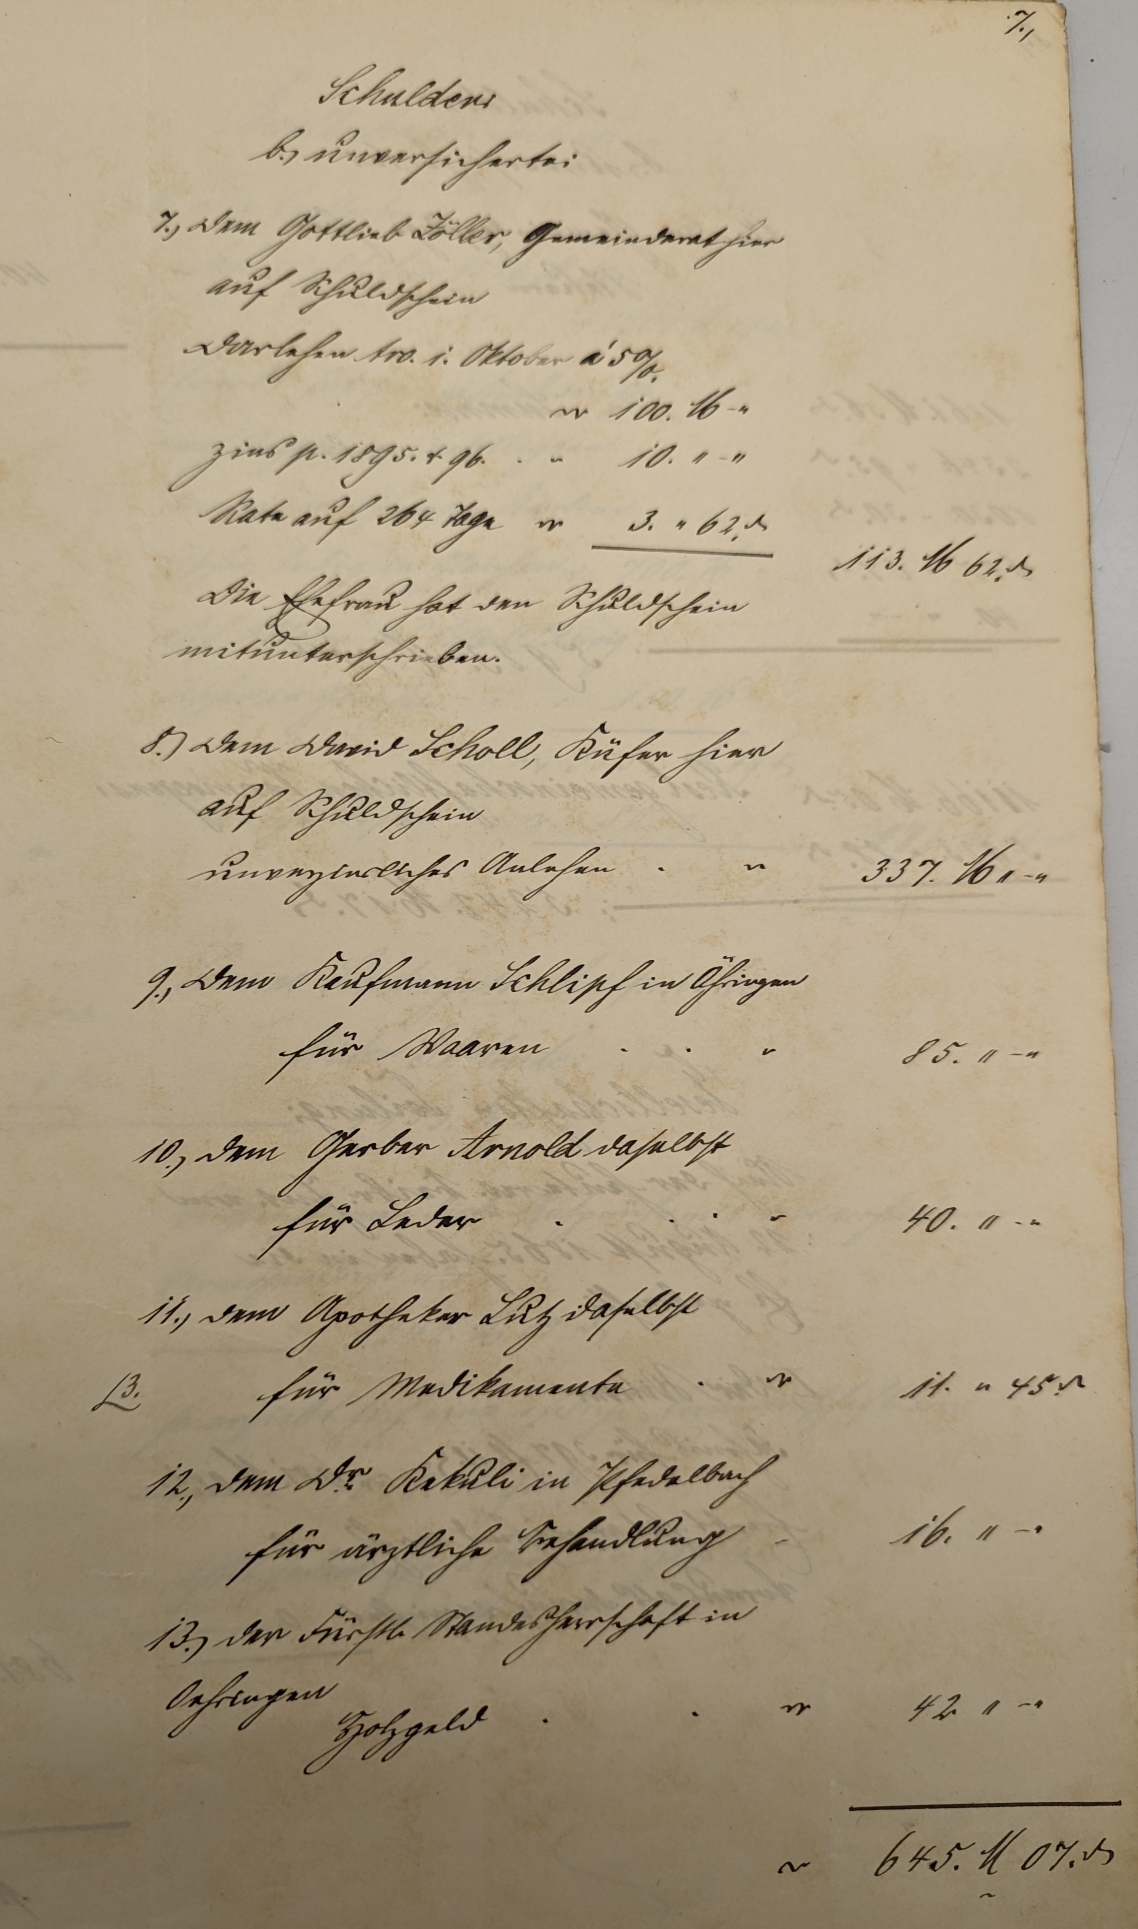 7.,
Schulden
b., unversicherte:
7., Dem Gottlieb Zöller, Gemeinderat hier
auf Schuldschein
Darlehen v. 1. Oktober á 5 %.
" 100. M - "
Zins p. 1895. & 96. . " 10. " - "
Rate auf 264 Tage " 3. " 62. ₰
113. M 62. ₰
Die Ehefrau hat den Schuldschein
mitunterschrieben.
8.) Dem David Scholl, Küfer hier
auf Schuldschein
unverzinsliches Anlehen . " 337. M " - "
9., Dem Kaufmann Schlipf in Öhringen
für Waaren . . " 85. " - "
10., dem Gerber Arnold daselbst
für Leder . . . " 40. " - "
11., dem Apotheker Lutz daselbst
3. für Medikamente . " 11. " 45. ₰
12., dem Dr. Kekuli in Pfedelbach
für ärztliche Behandlung " 16. " - "
13., der Fürstl. Standesherrschaft in
Oehringen
Holzgeld . . " 42 " - "
" 645. M 07. ₰